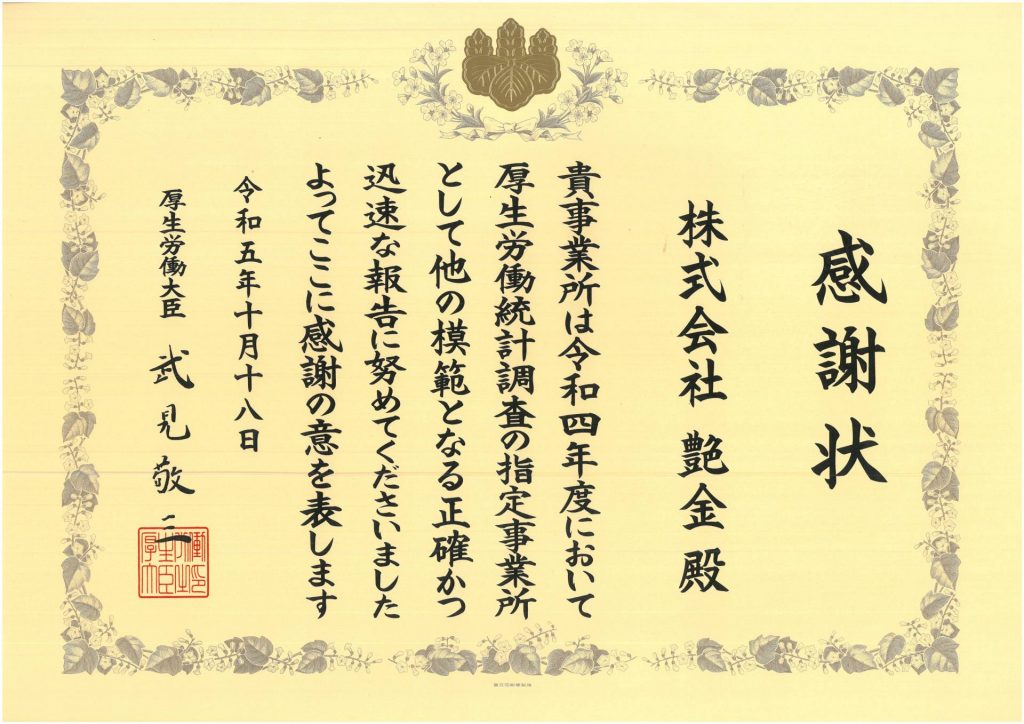 感謝状
株式会社 艶金 殿
貴事業所は令和四年度において
厚生労働統計調査の指定事業所
として他の模範となる正確かつ
迅速な報告に努めてくださいました
よってここに感謝の意を表します
令和五年十月十八日
厚生労働大臣 武見敬三